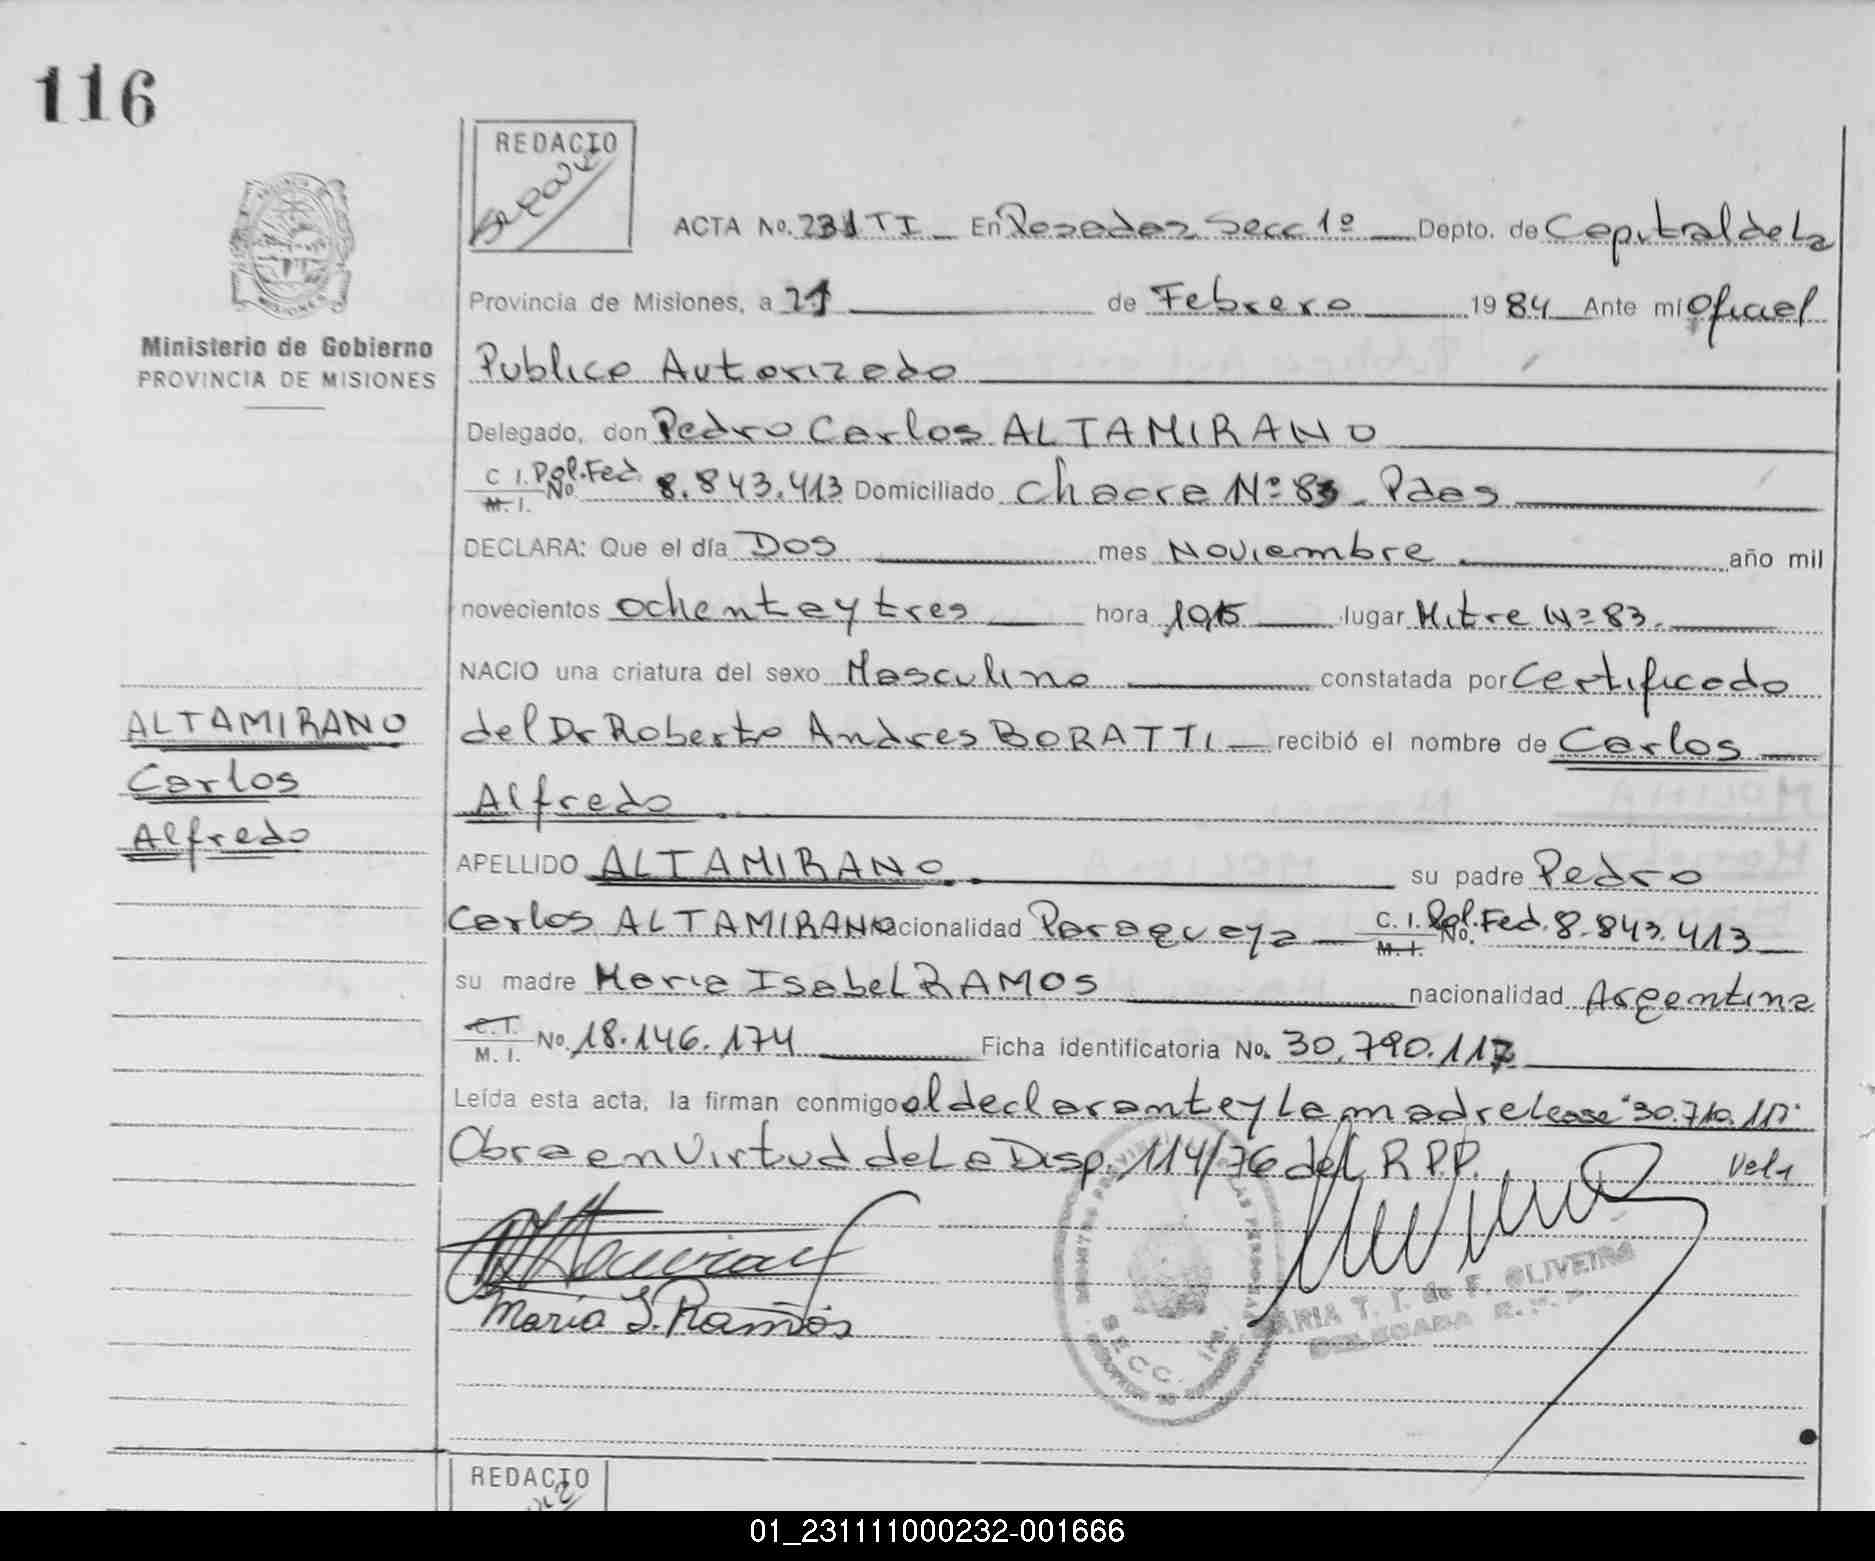 116
REDACTO
ACTA No. 231 TI En Posadas Secc 1º Depto. de Capital de La
Provincia de Misiones, a 21 de Febrero 1984 Ante mí Oficial
Ministerio de Gobierno
PROVINCIA DE MISIONES
Publico Autorizado
Delegado, don Pedro Carlos ALTAMIRANO
C. I. Pol. Fed.
M. I. No 8.843.413 Domiciliado Chacra Nº 83 - Pdas
DECLARA: Que el día DOS mes Noviembre año mil
novecientos ochenta y tres hora 1915 lugar Mitre Nº 83.
NACIO una criatura del sexo Masculino constatada por Certificado
ALTAMIRANO
Carlos
Alfredo
del Dr Roberto Andres BORATTI recibió el nombre de Carlos
Alfredo
APELLIDO ALTAMIRANO su padre Pedro
Carlos ALTAMIRANO nacionalidad Paraguaya C. I. Pol. Fed.
M. I. No. 8.843.413
su madre Maria Isabel RAMOS nacionalidad Argentina
C. I.
M. I. No. 18.146.174 Ficha identificatoria No. 30.790.117
Leída esta acta, la firman conmigo el declarante y La madre Lease "30.710.117"
Obra en Virtud de La Disp. 114/76 del R.P.P. Vele
María I. Ramos
SECC. 1ra.
MARIA T. I. de F. OLIVEIRA
DELEGADA R. P. P.
REDACTO
01_231111000232-001666